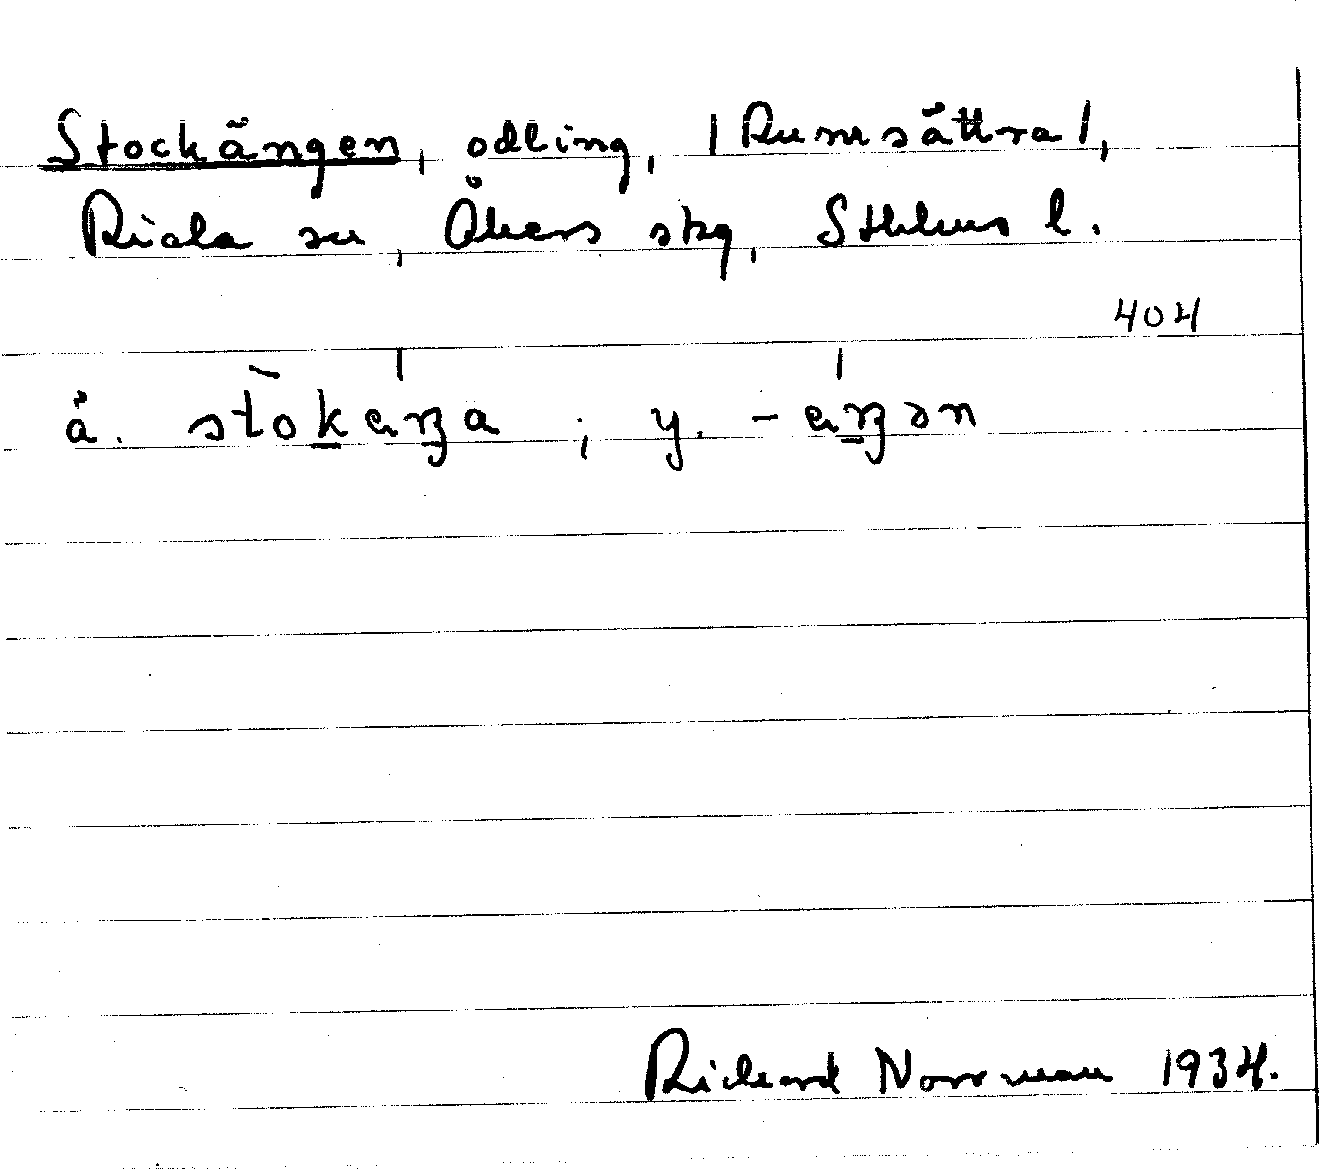 Stockängen, odling, | Rumsättra |,
Riala sn, Åkers skg, Sthlms l.
404
å. stokɐŋa ; y. -ɐŋən
Richard Norrman 1934.